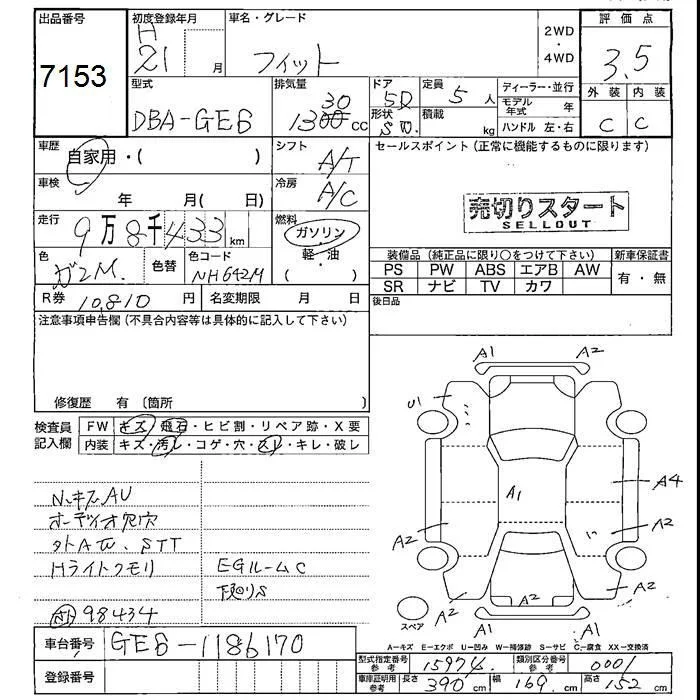 出品番号
7153
初度登録年月
H
21 月
車名・グレード
フィット
2WD
・
4WD
評価点
3.5
外装 内装
C C
型式
DBA-GE6
排気量
30
1300 cc
ドア
5D
形状
S W.
定員
5 人
積載
kg
ディーラー・並行
モデル年式 年
ハンドル 左・右
車歴
自家用・( )
シフト
A/T
車検
年 月( 日)
冷房
A/C
走行
9万8千433 km
燃料
ガソリン
・
軽・油
( )
色
ガンM.
色替
色コード
NH642M
R券 10,810 円
名変期限 月 日
セールスポイント(正常に機能するものに限ります)
売切りスタート
SELLOUT
装備品(純正品に限り○をつけて下さい)
新車保証書
PS PW ABS エアB AW
SR ナビ TV カワ
有・無
後日品
注意事項申告欄(不具合内容等は具体的に記入して下さい)
修復歴 有〔箇所 〕
検査員記入欄
FW キズ・飛石・ヒビ割・リペア跡・X要
内装 キズ・汚レ・コゲ・穴・スレ・キレ・破レ
N.キズAU
オーディオ穴穴
Hライトクモリ
EGルームC
下廻りS
98434
車台番号 GE6-1186170
登録番号
A1 A2
U1
A1
A4
A2 A2
A2 A2 A2
A1 A1
スペア
A=キズ E=エクボ U=凹み W=補修跡 S=サビ C=腐食 XX=交換済
型式指定番号 参考 15974
類別区分番号 参考 0001
車庫証明用 参考 長さ 390 cm 幅 169 cm 高さ 152 cm